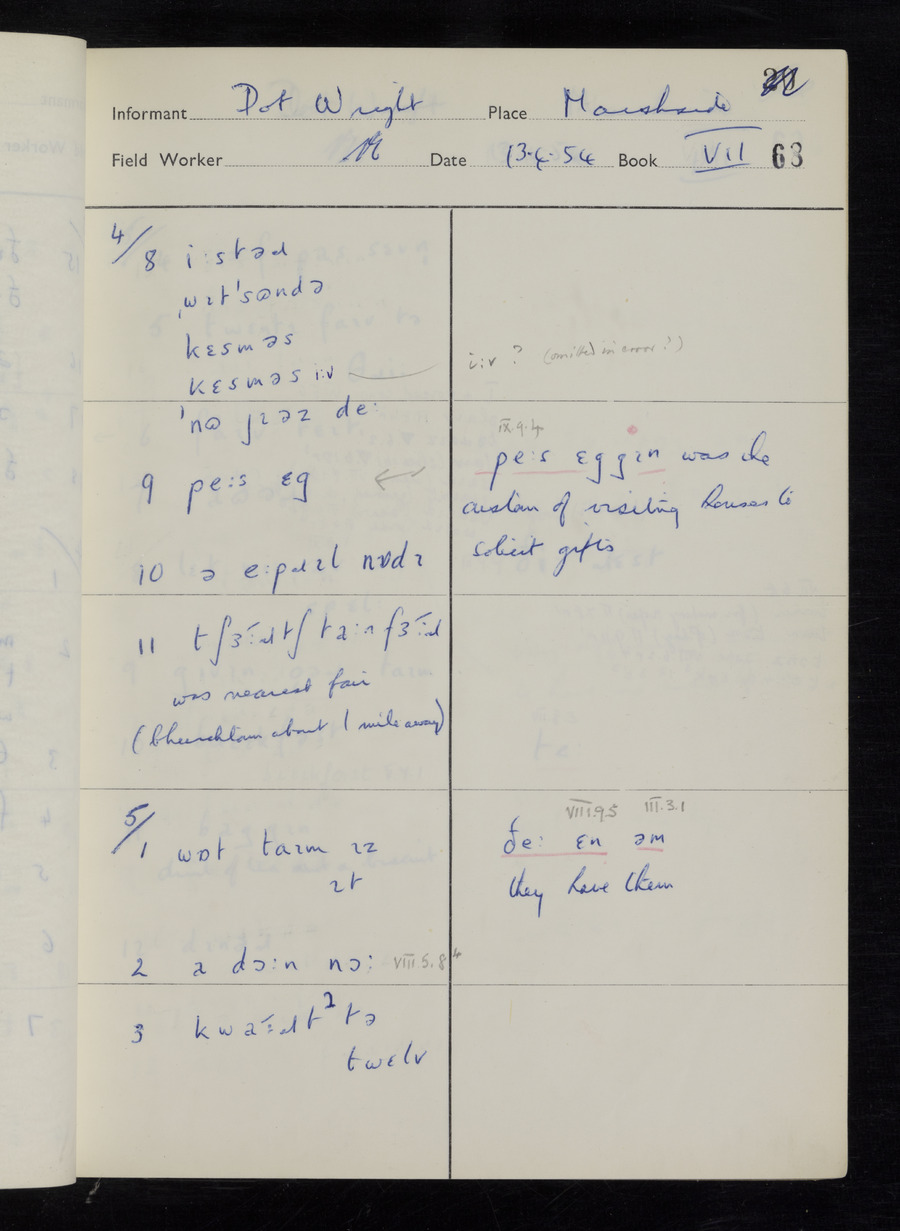 Informant Pot Wright Place Marshside
Field Worker Date 13.4.54 Book VII 63
4/8 i:stəɹ
ˌwɪt'sɷndə
kɛsməs
kɛsməs i:v
i:v ? (omitted in error?)
'nɷ jɪəz de:
IX.9.4
9 pe:s ɛg
pe:s ɛggɪn was the
custom of visiting houses to
solicit gifts
10 ə e:pəɹɪl nɒdɪ
11 tʃɜ:ɹtʃ ta:n fɜ:ɹ
was nearest fair
(Churchtown about 1 mile away)
5/1 wɒt taɪm ɪz
ɪt
VIII.9.5 III.3.1
ðe: ɛn əm
they have them
2 a dɔ:n nɔ: VIII.5.8
3 kwa:ɹt tə
twɛlv